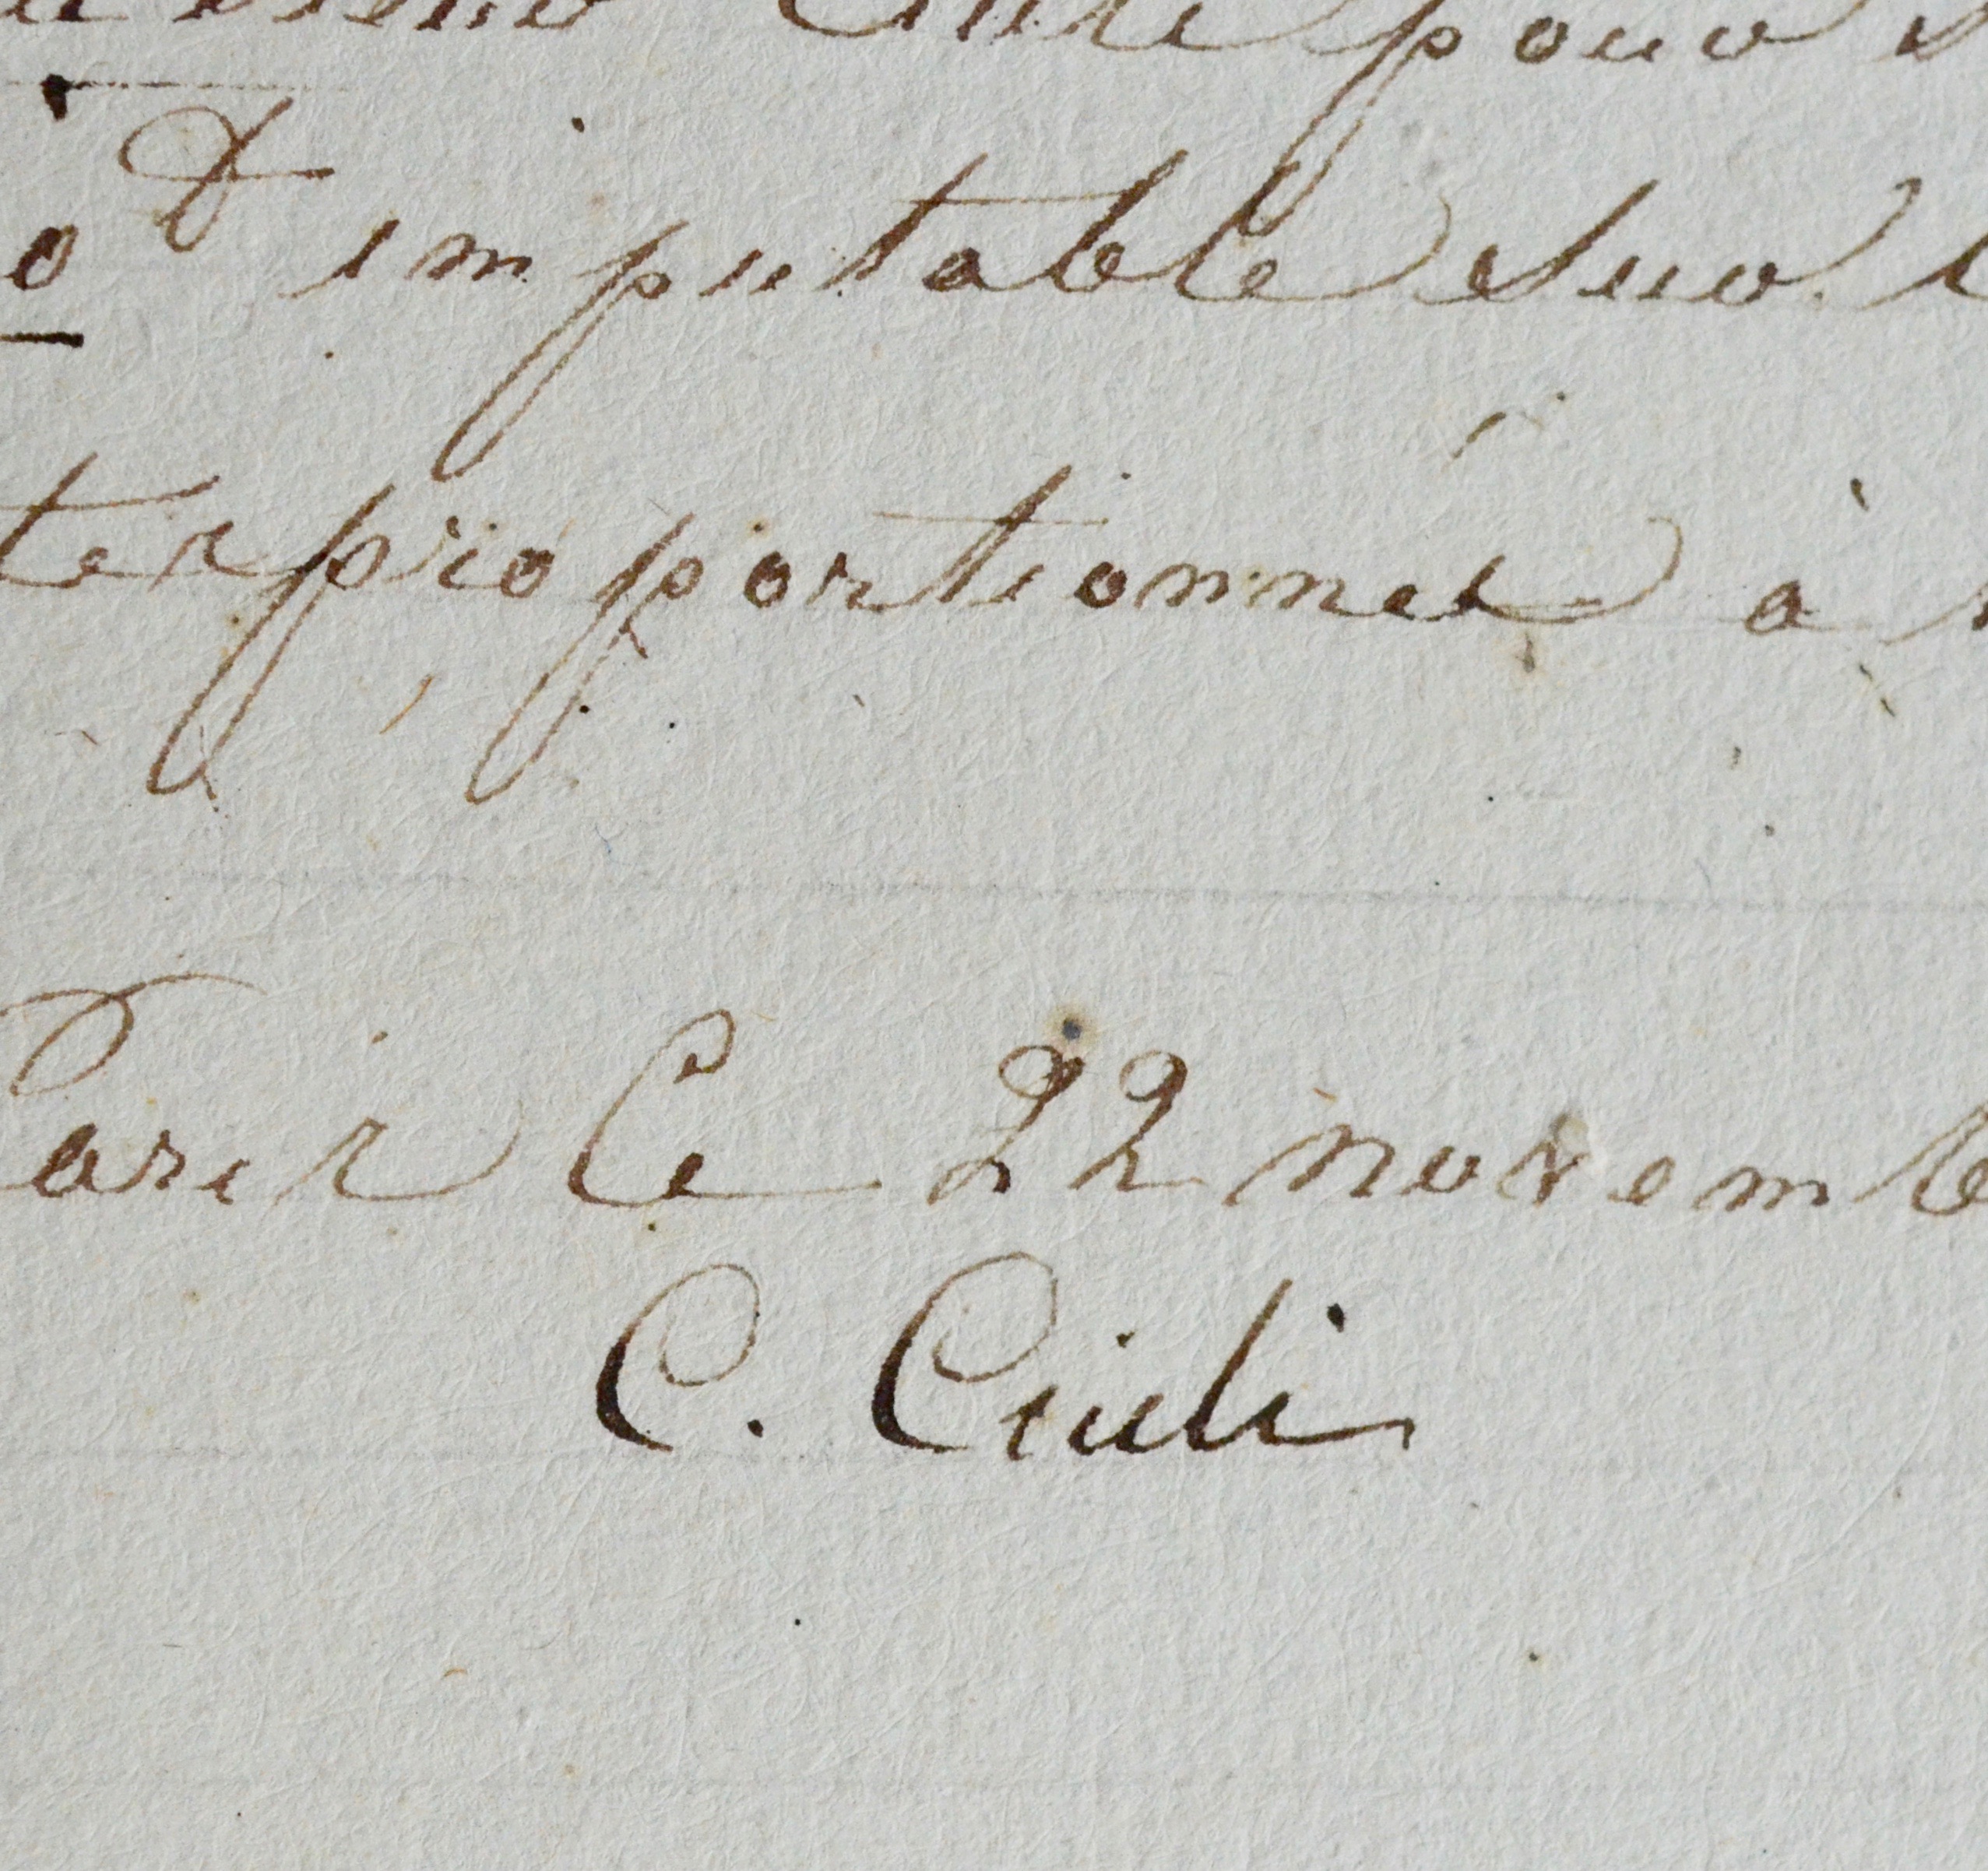 pour
imputable sur
proportionnés à
Paris Ce 22 novemb
C. Ciuli